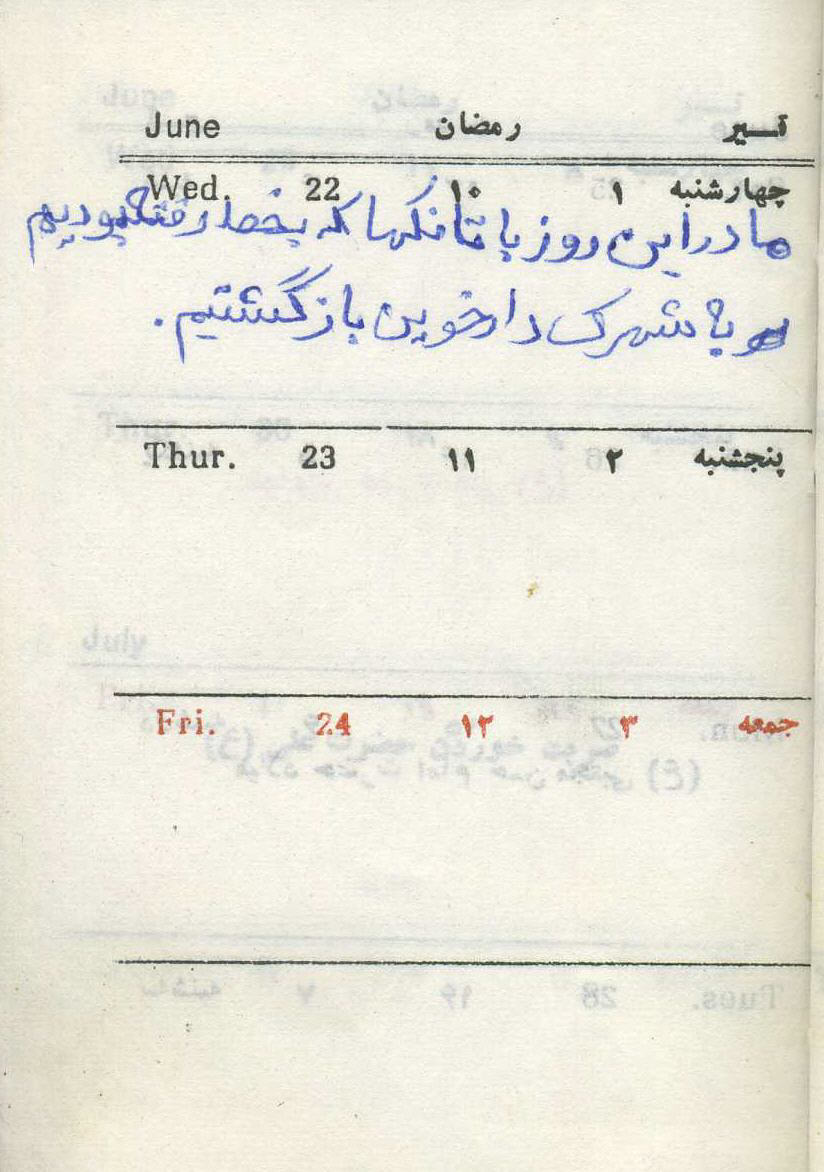 تــیر رمضان June
چهارشنبه ۱ ۱۰ 22 Wed.
ما در این روز با تانکها که بخط رفته بودیم
و با شهرک دارخوین بازگشتیم.
پنجشنبه ۲ ۱۱ 23 Thur.
جمعه ۳ ۱۲ 24 Fri.